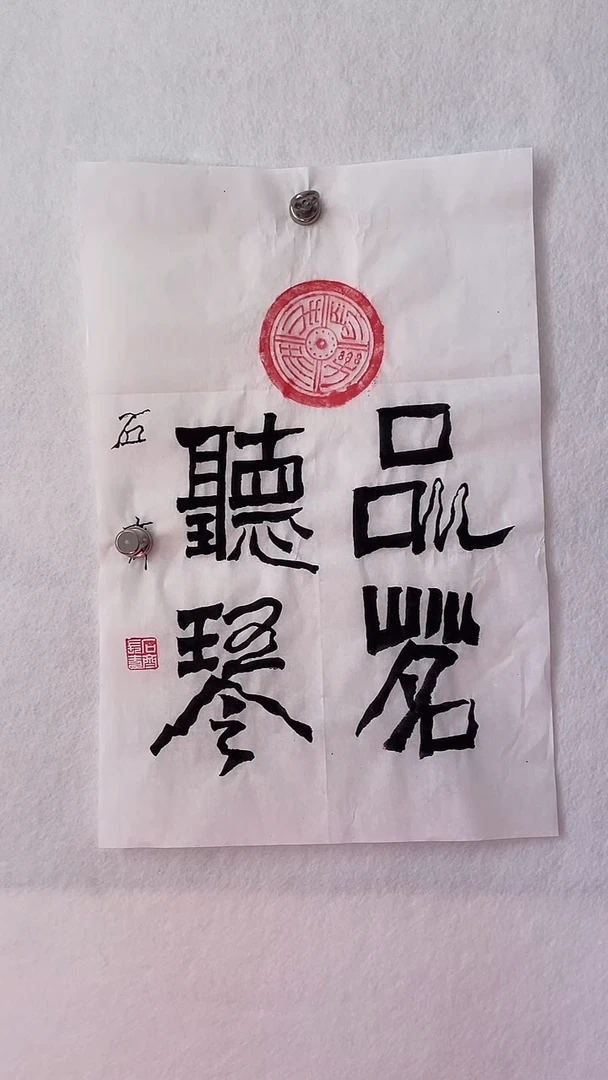 品茗
聽琴
石